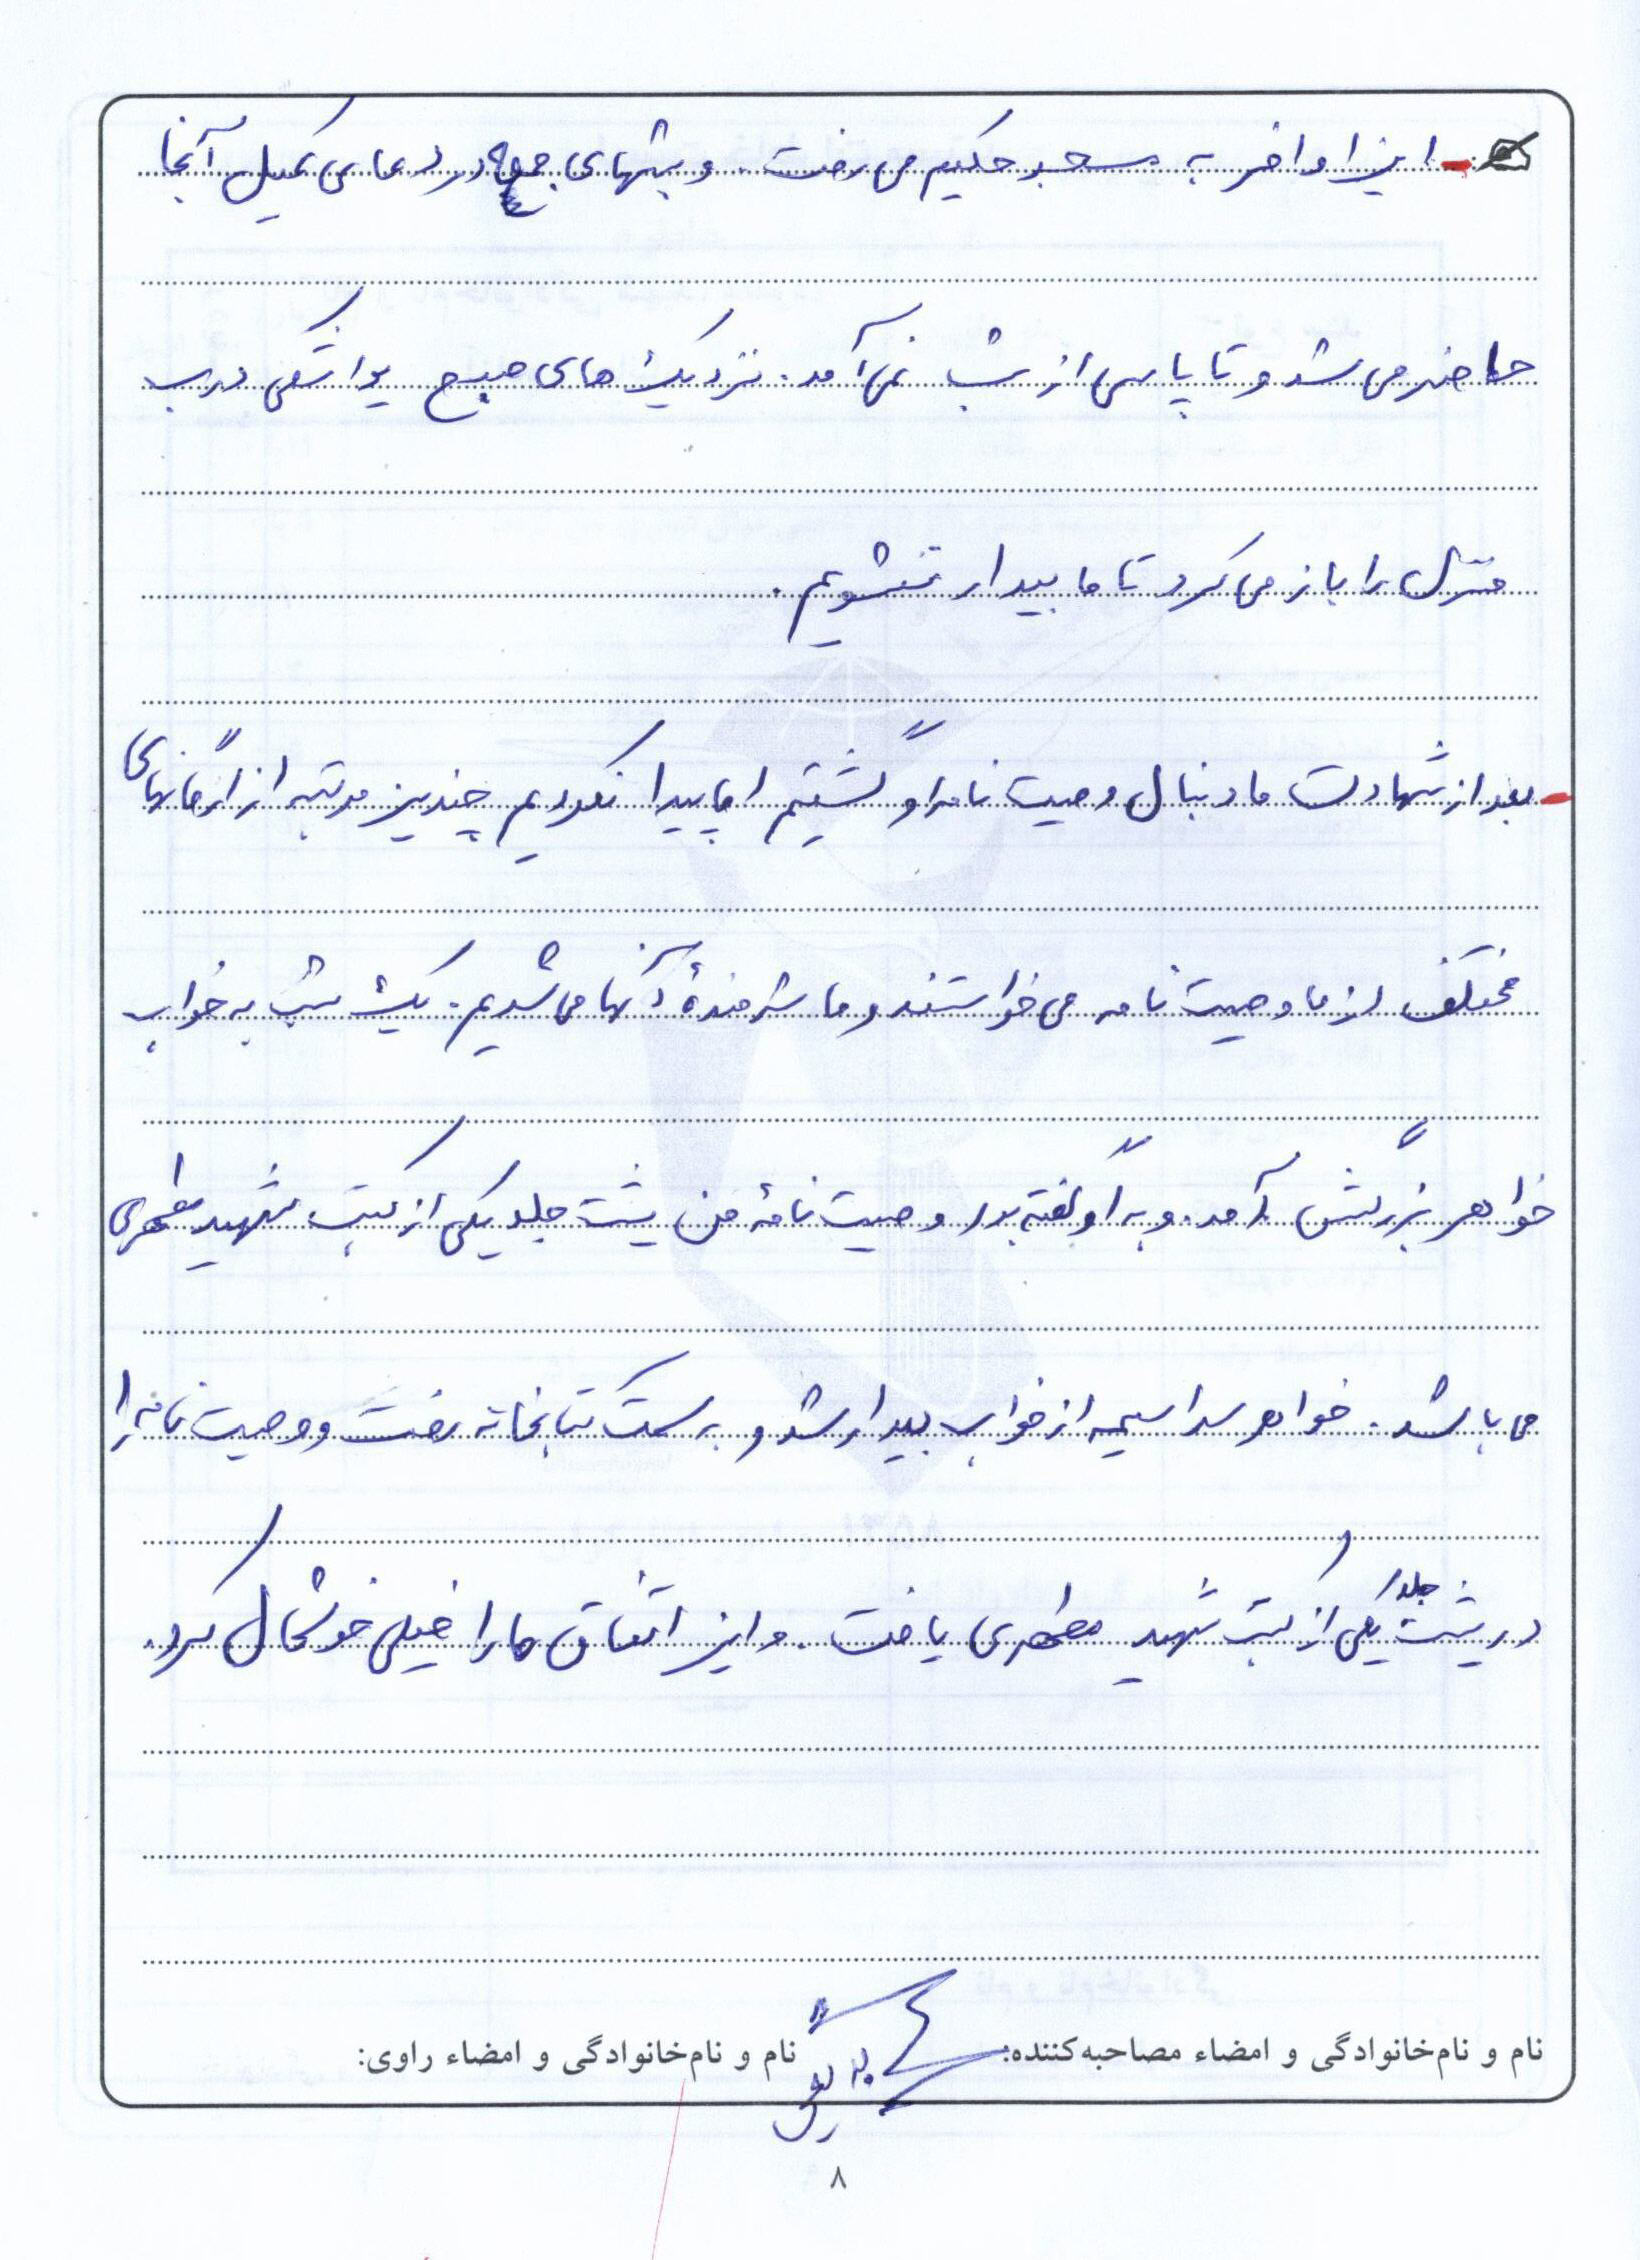 - این اواخر به مسجد حکیم می رفت. و شبهای جمعه در دعای کمیل آنجا
حاضر می شد و تا پاسی از شب نمی آمد. نزدیک های صبح یواشکی درب
منزل را باز می کرد تا ما بیدار نشویم.
- بعد از شهادت ما دنبال وصیت نامه او گشتیم اما پیدا نکردیم چندین مرتبه از ارگانهای
مختلف از ما وصیت نامه می خواستند و ما شرمندهٔ آنها می شدیم. یک شب به خواب
خواهر بزرگش آمد. و به او گفته بود وصیت نامهٔ من پشت جلد یکی از کتب شهید مطهری
می باشد. خواهر سراسیمه از خواب بیدار شد و به سمت کتابخانه رفت و وصیت نامه را
در پشت جلد یکی از کتب شهید مطهری یافت. و این اتفاق ما را خیلی خوشحال کرد.
نام و نام‌خانوادگی و امضاء مصاحبه‌کننده: نام و نام‌خانوادگی و امضاء راوی:
۸